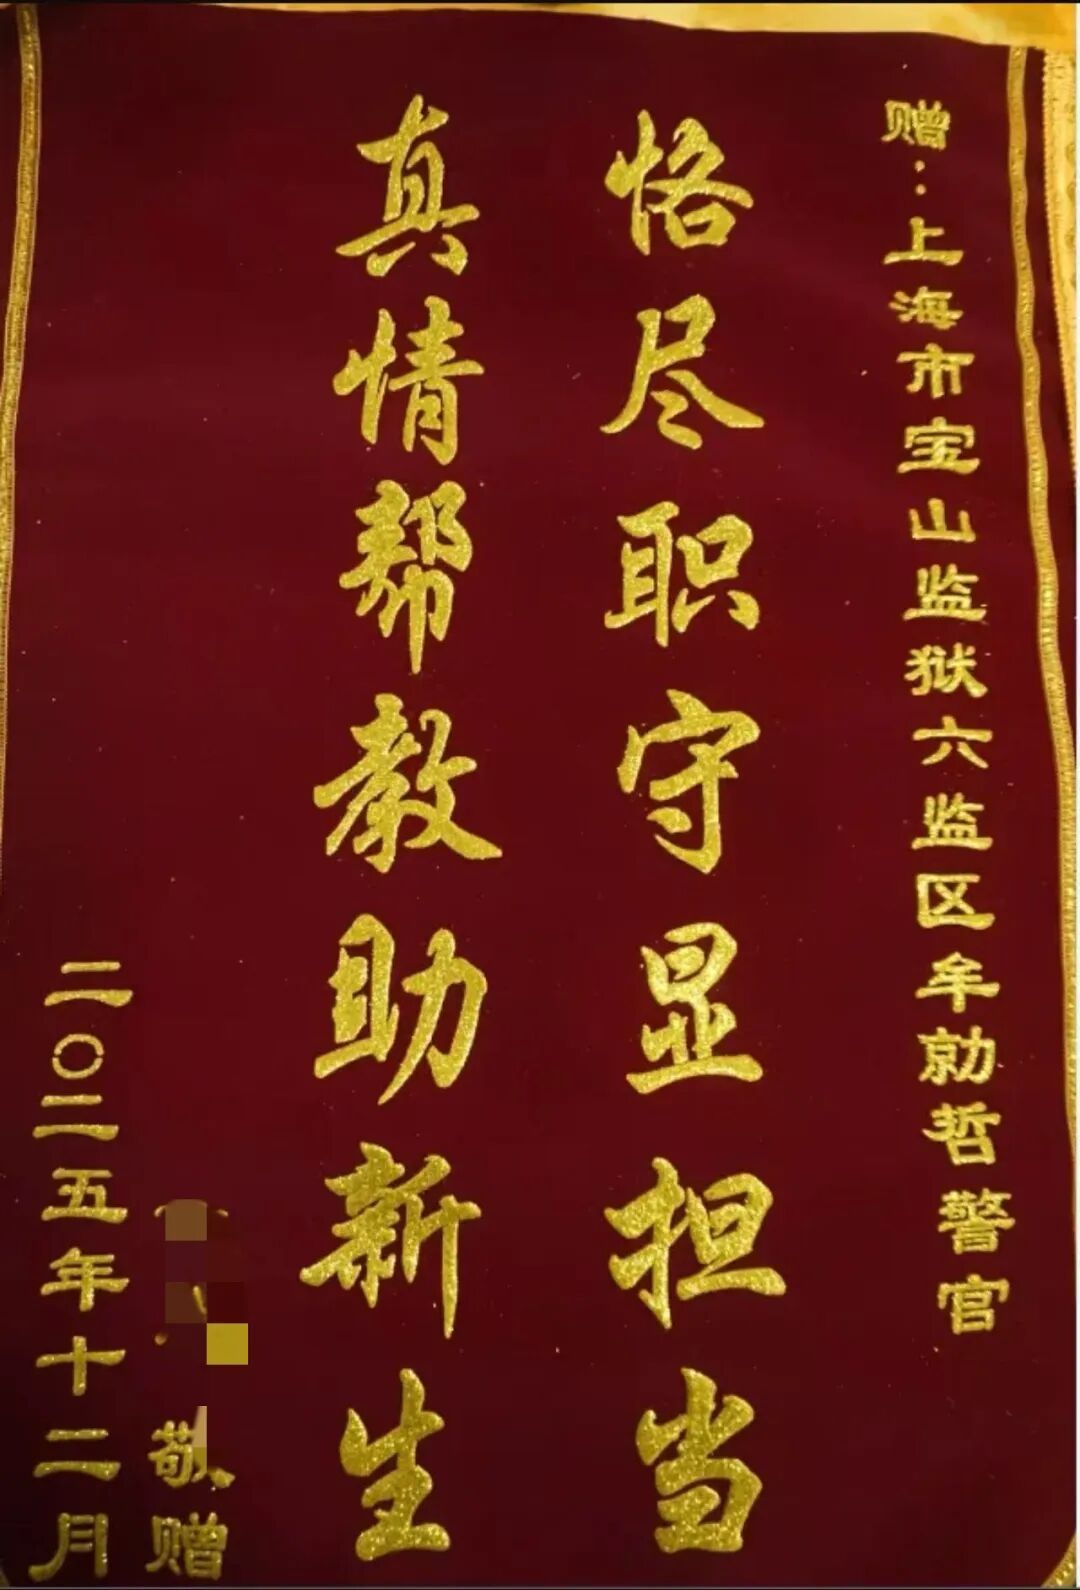 赠：上海市宝山监狱六监区牟勍哲警官
恪尽职守显担当
真情帮教助新生
敬赠
二〇二五年十二月